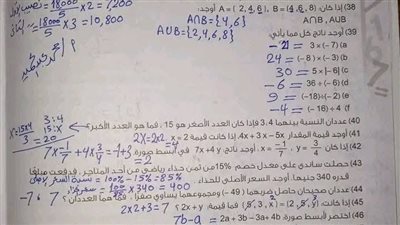 18000/5 x2 = 7,200
18000/5 x3 = 10,800
38) إذا كان A = ( 2, 4, 6 ), B = (4, 6, 8) أوجد:
A∩B , AUB
A∩B = {4,6}
AUB = {2,4,6,8}
39) أوجد ناتج كل مما يأتي
a) 3 × (-7) = -21
b) (-3) × (-8) = 24
c) 5 × |-6| = 30
d) 36 ÷ (-6) = -6
e) (-18) ÷ (-2) = 9
f) (-16) ÷ 4 = -4
40) عددان النسبة بينهما 3:4 فإذا كان العدد الأصغر هو 15 ، فما هو العدد الأكبر؟
3:4
15:X
X = 15×4/3 = 20
41) أوجد قيمة المقدار 4x + 3x - 5x إذا كانت قيمة x = 2
2X = 2x2 = 4
42) إذا كانت x = -1/7 ، y = 3/4 أوجد ناتج 7x + 4y في أبسط صورة.
7X - 1/7 + 4x 3/4 = -1 + 3 = 2
43) حصلت ساندي على معدل خصم 15% من ثمن حذاء رياضي من أحد المتاجر، فدفعت مبلغًا
قدره 340 جنيها، أوجد السعر الأصلي للحذاء
100% - 15% = 85%
100/85 x 340 = 400
44) عددان صحيحان حاصل ضربهما (49-) ومجموعهما يساوي صفر، فما هما العددان؟ 7 ، -7
2x2+3 = 7
46) اختصر لأبسط صورة: 2a + 3b - 3a + 4b =
7b - a